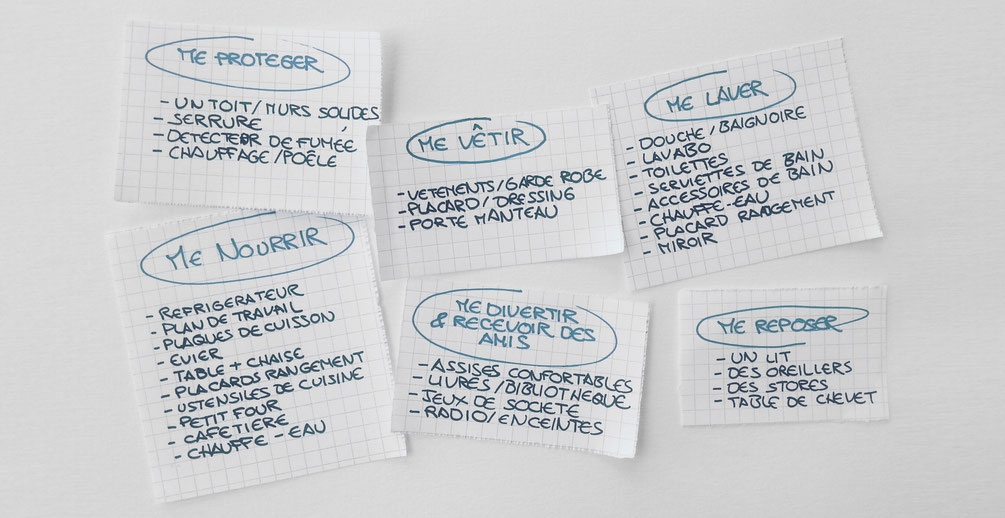 ME PROTEGER
- UN TOIT/MURS SOLIDES
- SERRURE
- DETECTEUR DE FUMÉE
- CHAUFFAGE/POÊLE
ME VÊTIR
- VETEMENTS/GARDE ROBE
- PLACARD/DRESSING
- PORTE MANTEAU
ME LAVER
- DOUCHE/BAIGNOIRE
- LAVABO
- TOILETTES
- SERVIETTES DE BAIN
- ACCESSOIRES DE BAIN
- CHAUFFE-EAU
- PLACARD RANGEMENT
- MIROIR
ME NOURRIR
- REFRIGERATEUR
- PLAN DE TRAVAIL
- PLAQUES DE CUISSON
- EVIER
- TABLE + CHAISE
- PLACARDS RANGEMENT
- USTENSILES DE CUISINE
- PETIT FOUR
- CAFETIERE
- CHAUFFE-EAU
ME DIVERTIR
& RECEVOIR DES
AMIS
- ASSISES CONFORTABLES
- LIVRES/BIBLIOTHEQUE
- JEUX DE SOCIETE
- RADIO/ENCEINTES
ME REPOSER
- UN LIT
- DES OREILLERS
- DES STORES
- TABLE DE CHEVET